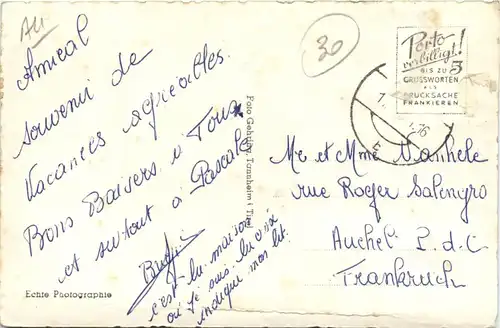 AU
30
Amical
souvenir de
Vacances agréables.
Bons Baisers à Tous
et surtout à Pascale
c'est la maison
où je suis la croix
indique mon lit.
Echte Photographie
Foto Gehring, Tannheim i Tirol
Porto
verbilligt!
BIS ZU 5
GRUSSWORTEN
ALS
DRUCKSACHE
FRANKIEREN
Me et Mme
rue Roger Salengro
Auchel P.d.C
Frankreich